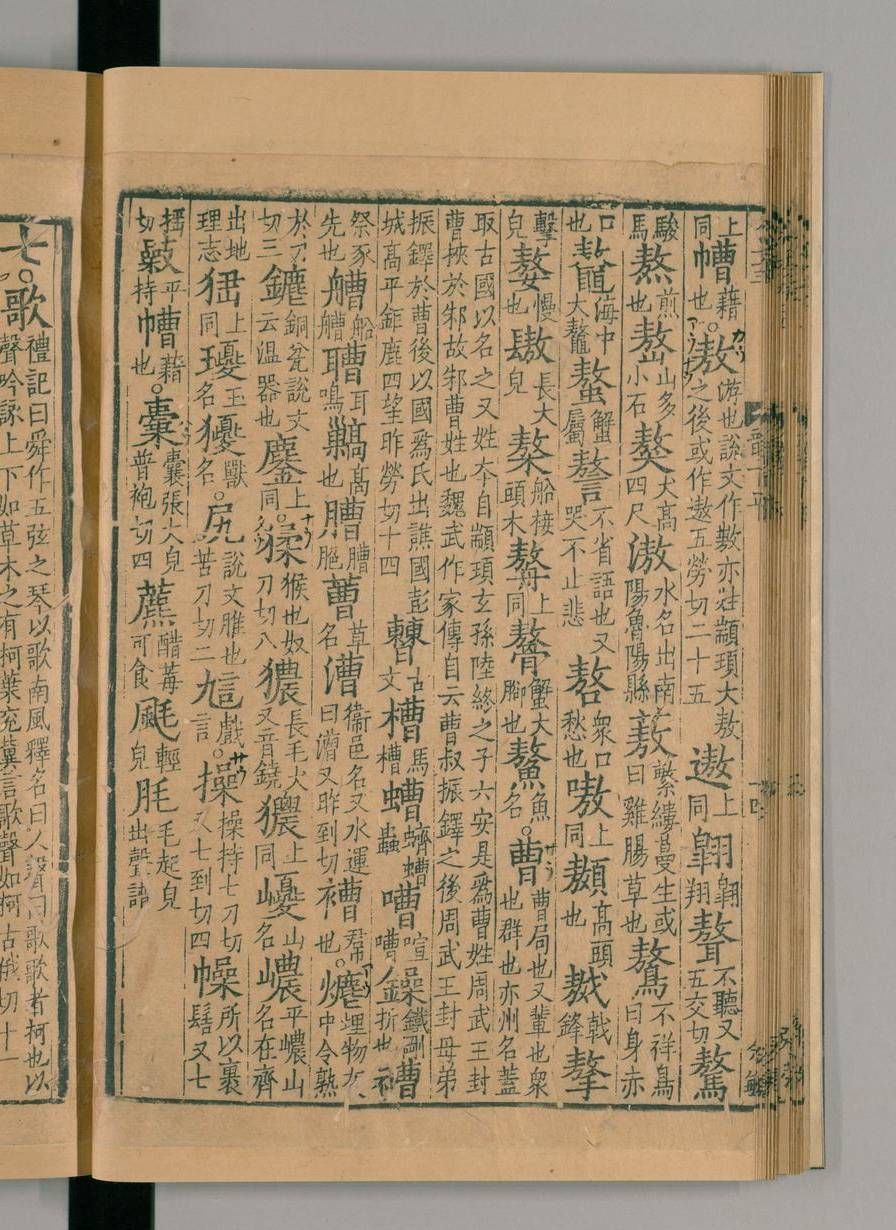 上同㡟藉也。敖游也說文作敖亦姓顓頊大敖之後或作遨五勞切二十五遨上同翱翱翔聱不聽又五交切驁
駿馬熬煎也嶅山多小石獒犬高四尺滶水名出南陽魯陽縣蔜蘩縷蔓生或曰雞腸草也鷔不祥鳥白身赤
口也鼇海中大鼇螯蟹屬謷不省語也又哭不止悲嗸衆口愁也嗷上同高頭也戟鋒摮
擊皃嫯慢也長大皃船接頭木上同蟹大脚也鰲魚名。曹曹局也又輩也衆也群也亦州名蓋
取古國以名之又姓本自顓頊玄孫陸終之子六安是爲曹姓周武王封曹挾於邾故邾曹姓也魏武作家傳自云曹叔振鐸之後周武王封母弟
振鐸於曹後以國爲氏出譙國彭城高平鉅鹿四望昨勞切十四古文槽馬槽螬蠐螬蟲嘈喧嘈鐵剛折也
祭豕先也艚船艚耳鳴高也蓸草名漕衞邑名又水運曰漕又昨到切褿帬也。爊埋物灰中令熟
於刀切三鏖銅瓫說文云温器也上同。猱猴也奴刀切八獶長毛犬又音鐃獿上同巎山名平山名在齊
出地理志上同玉名獸名。尻說文脽也苦刀切二戲言。操操持七刀切又七到切四幧所以裹髻又七
搖切持㡟藉也。櫜囊張大皃普袍切四藨醋苺可食毛輕皃毛起皃出聲譜
七。歌禮記曰舜作五弦之琴以歌南風釋名曰人聲曰歌歌者柯也以聲吟詠上下如草木之有柯葉兖冀言歌聲如柯古俄切十一